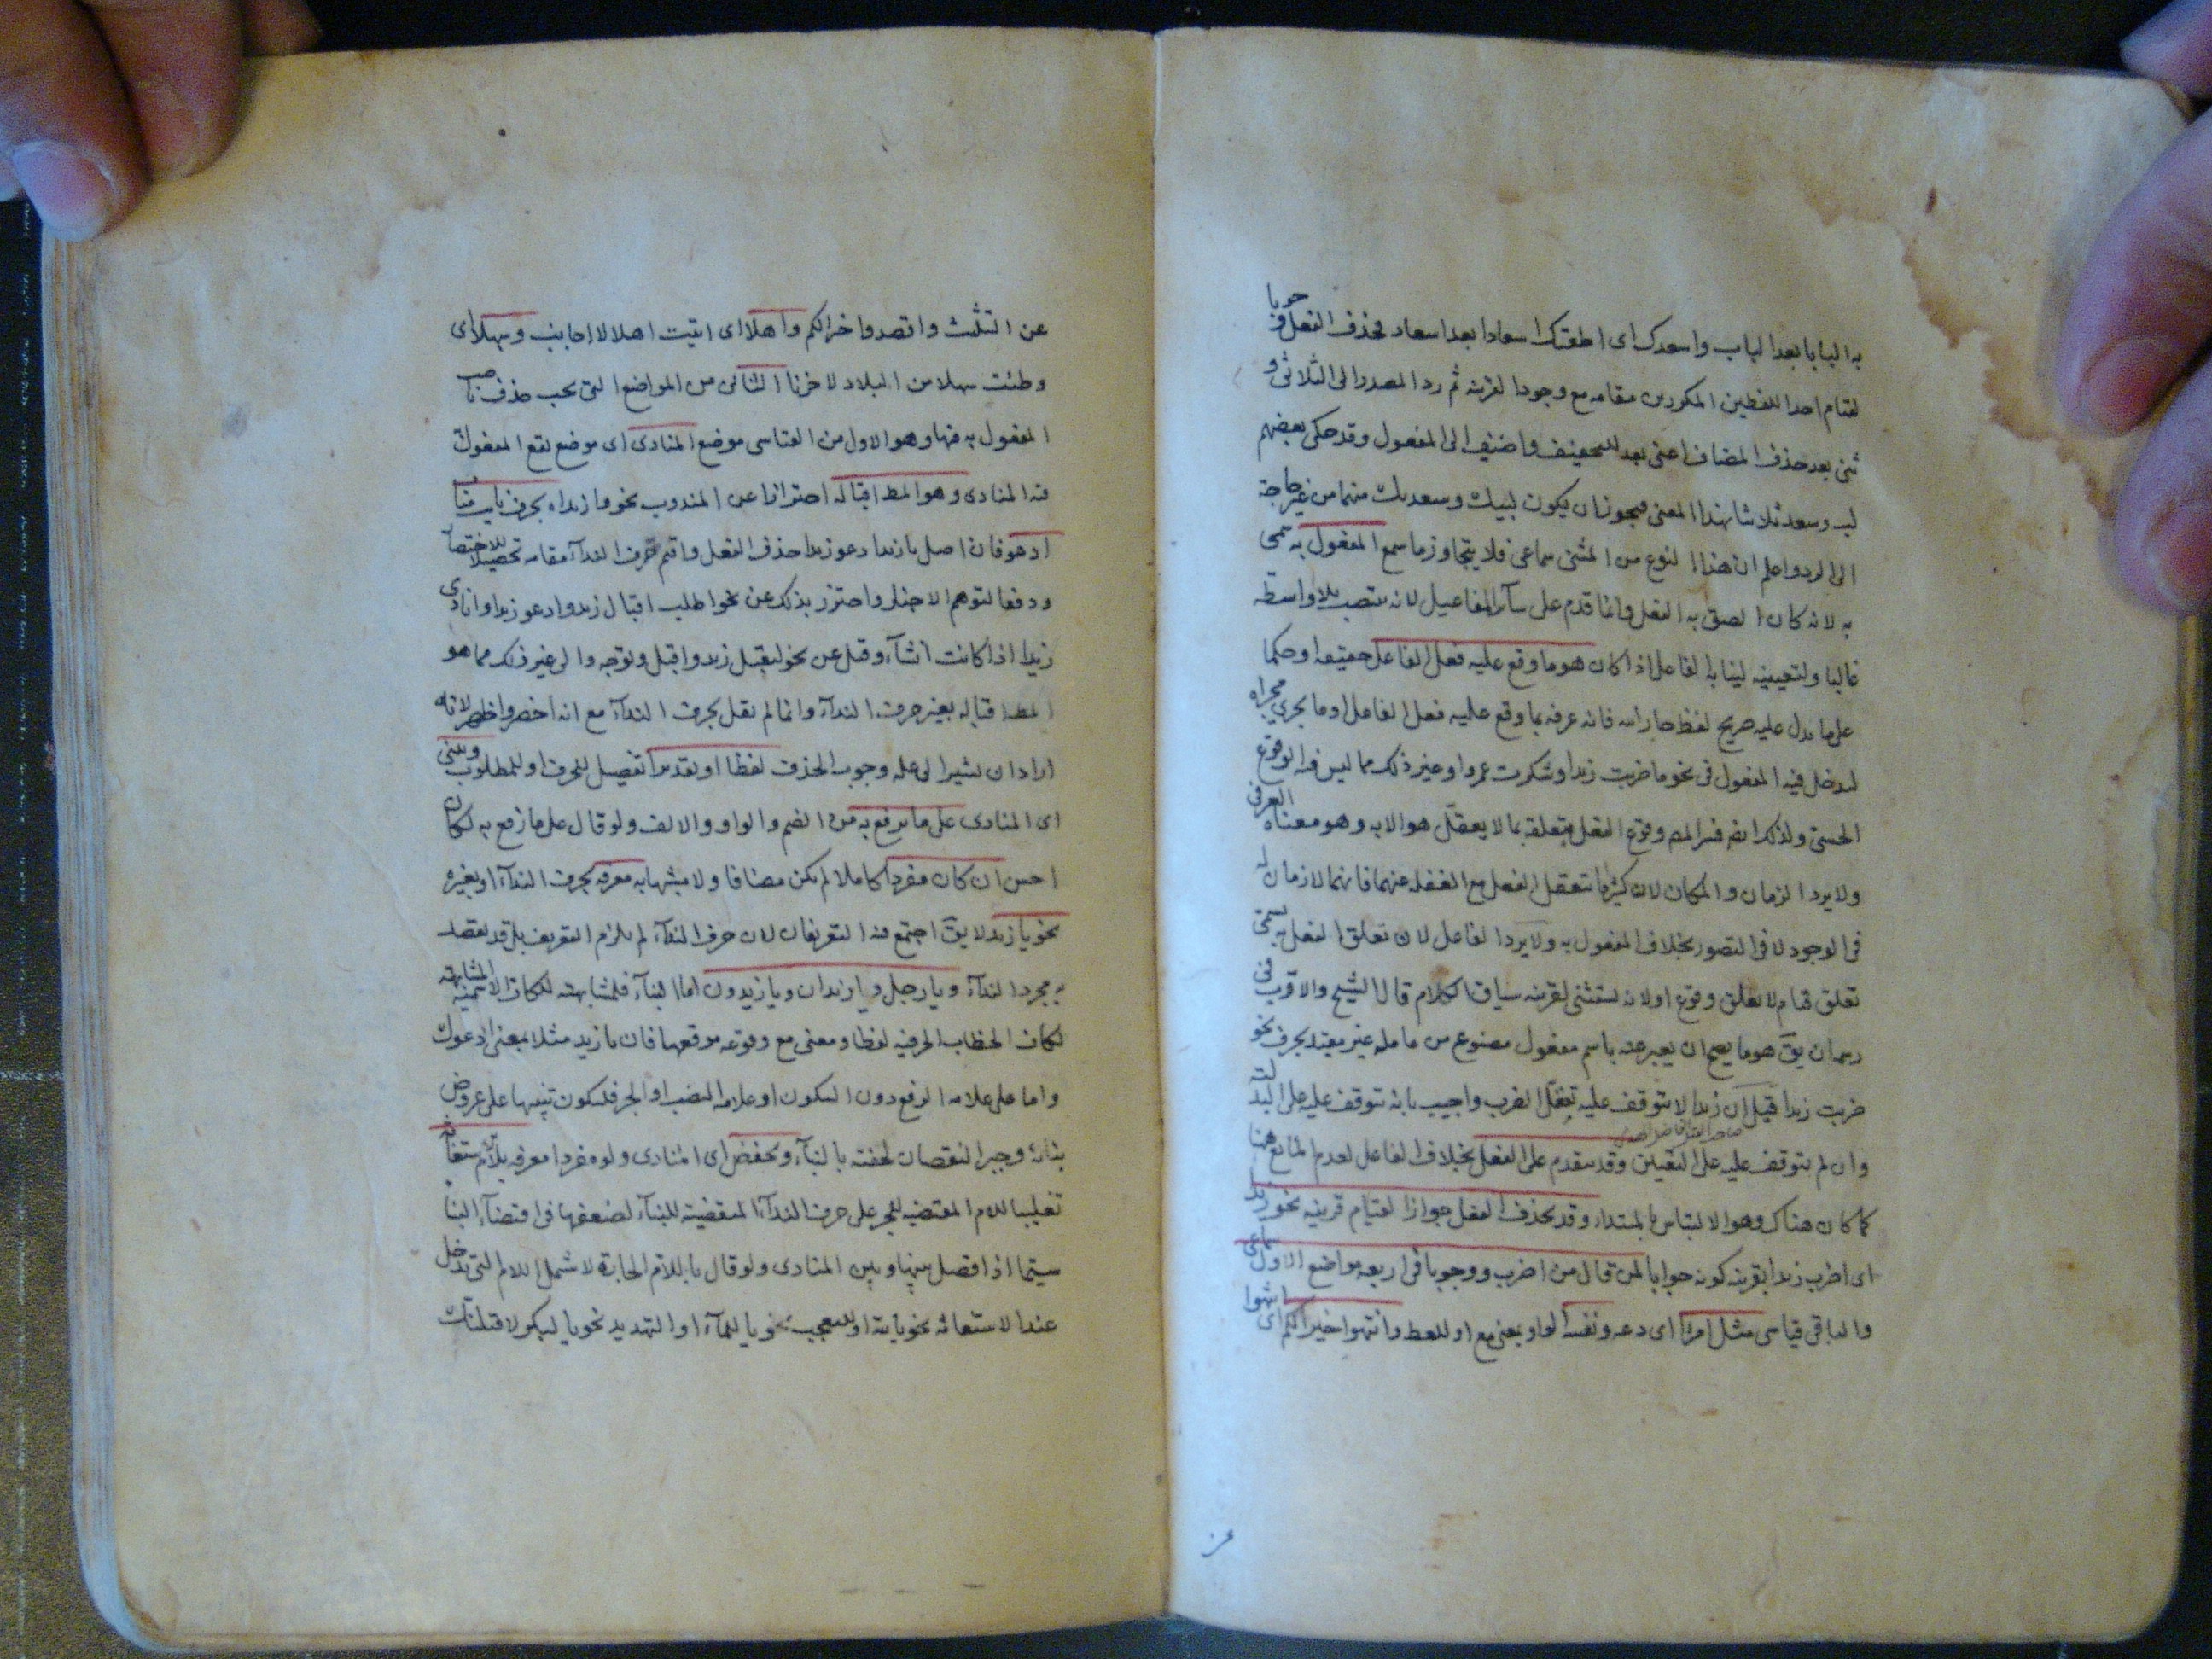 به البابا بعد الباب واسعدك اى اطعتك اسعادا بعد اسعاد فحذف الفعل وجوبا
لقيام احد اللفظين المكررين مقامه مع وجود القرينه ثم رد المصدر الى الثلاثى و
ثنى بعد حذف المضاف اعنى بعد للتخفيف واضيف الى المفعول وقد حكى بعضهم
لب وسعد ثلاثيا بهذا المعنى فيجوز ان يكون لبيك وسعديك منهما من غير حاجة
الى الرد واعلم ان هذا النوع من المثنى سماعى فلا يتجاوز ما سمع المفعول به سمى
به لانه كان الصق به الفعل وانما قدم على سائر المفاعيل لانه ينتصب بلا واسطة
غالبا ولتعيينه لينابه الفاعل اذا كان هو ما وقع عليه فعل الفاعل حقيقه او حكما
على ما يدل عليه صريح لفظ جار الله فانه عرفه بما وقع عليه فعل الفاعل او ما يجرى مجراه
ليدخل فيه المفعول فى نحو ما ضربت زيدا وشكرت عمروا وغير ذلك مما ليس فيه الوقوع
الحسى ولذلك ايضا فسر المص وقوع الفعل بتعلقه بما لا يعقل هو الا به وهو معناه العرفى
ولا يرد الزمان والمكان لان كثيرا ما نتعقل الفعل مع الغفلة عنهما فانهما لازمان له
فى الوجود لا فى التصور بخلاف المفعول به ولا يرد الفاعل لان تعلق الفعل به يسمى
تعلق قيام لا تعلق وقوع او لانه يستثنى بقرينه سياق الكلام قال الشيخ والاقرب فى
رسمه ان يق هو ما يصح ان يعبر عنه باسم مفعول مصنوع من عامله غير مقيد بحرف نحو
ضربت زيدا قيل ان زيدا لا يتوقف عليه تعقل الضرب واجيب بانه يتوقف عليه على البدلية
وان لم يتوقف عليه على التعيين وقد يتقدم على الفعل بخلاف الفاعل لعدم المانع ههنا
كما كان هناك وهو الالتباس بالمبتداء وقد يحذف الفعل جوازا لقيام قرينه نحو زيدا
اى اضرب زيدا بقرينه كونه جوابا لمن قال من اضرب ووجوبا فى اربعه مواضع الاول سماعى
والباقى قياسى مثل امرأ اى دعه ونفسه الواو بمعنى مع او للعطف وانتهوا خيرا لكم اى انتهوا
عن التثليث واقصدوا خيرا لكم واهلا اى اتيت اهلا لا اجانب وسهلا اى
وطئت سهلا من البلاد لا حزنا الثانى من المواضع التى يجب حذف ناصب
المفعول به فيها وهو الاول من القياسى موضع المنادى اى موضع يقع المفعول
فيه المنادى وهو المط اقباله احترازا عن المندوب نحو وا زيداه بحرف نايب مناب
ادعو فان اصل يا زيد ادعو زيدا حذف الفعل واقيم حرف النداء مقامه تحصيلا للاختصار
ودفعا لتوهم الاخبار واحترز بذلك عن نحو اطلب اقبال زيد وادعو زيدا وانادى
زيدا اذا كانت انشاء وقيل عن نحو ليقبل زيد واقبل وتوجه والى غير ذلك مما هو
المط اقباله بغير حرف النداء وانما لم يقل بحرف النداء مع انه اخصر واظهر لانه
اراد ان يشير الى علة وجوب الحذف لفظا او تقديرا تفصيل للحرف او للمطلوب ويبنى
اى المنادى على ما يرفع به من الضم والواو والالف ولو قال على ما رفع به لكان
احسن ان كان مفردا كاملا لم يكن مضافا ولا مشبها به معرفه بحرف النداء او بغيره
نحو يا زيد لا يق اجتمع فيه التعريفان لان حرف النداء لم يلزم التعريف بل قد يقصد
به مجرد النداء ويا رجل ويا زيدان ويا زيدون اما البناء فلمشابهته للكاف الاسمية المشابهة
لكاف الخطاب الحرفيه لفظا ومعنى مع وقوعه موقعها فان يا زيد مثلا بمعنى ادعوك
واما على علامه الرفع دون السكون او علامة النصب او الجر فليكون تنبيها على عروض
بنائه وجبر النقصان لحقته بالبناء ويخفض اى المنادى ولو مفردا معرفه بلام استغاثه
تغليبا للام المقتضيه للجر على حرف النداء المقتضية للبناء لضعفها فى اقتضاء البناء
سيما اذا فصل بينها وبين المنادى ولو قال باللام الجارة لا شمل اللام التى تدخل
عند الاستغاثه نحو يا لله او للتعجب نحو يا للماء او التهديد نحو يا لبكر لاقتلنك